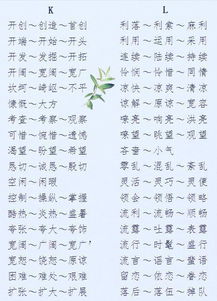 K
开创～创造～首创
开端～开始～开头
开发～发掘～开拓
开阔～宽阔～宽广
坎坷～崎岖～不平
慷慨～大方
考查～考察～观察
可惜～惋惜～遗憾
渴望～盼望～希望
恳切～诚恳～殷切
空闲～闲暇
控制～操纵～掌握
酷热～炎热～盛暑
夸张～夸大～夸饰
宽阔～广阔～宽广
宽恕～饶恕～原谅
困难～难处～艰难
扩张～扩大～扩展
L
利落～利索～麻利
利用～运用～采用
连续～陆续～持续
怜悯～怜惜～同情
凉快～凉爽～清凉
谅解～原谅～宽容
嘹亮～响亮～洪亮
瞭望～眺望～观望
吝啬～小气
零乱～混乱～紊乱
灵活～灵巧～灵便
领会～领悟～领略
流利～流畅～顺畅
流露～吐露～表露
流行～时髦～盛行
流言～谣言～蜚语
留恋～依恋～眷恋
落后～落伍～掉队